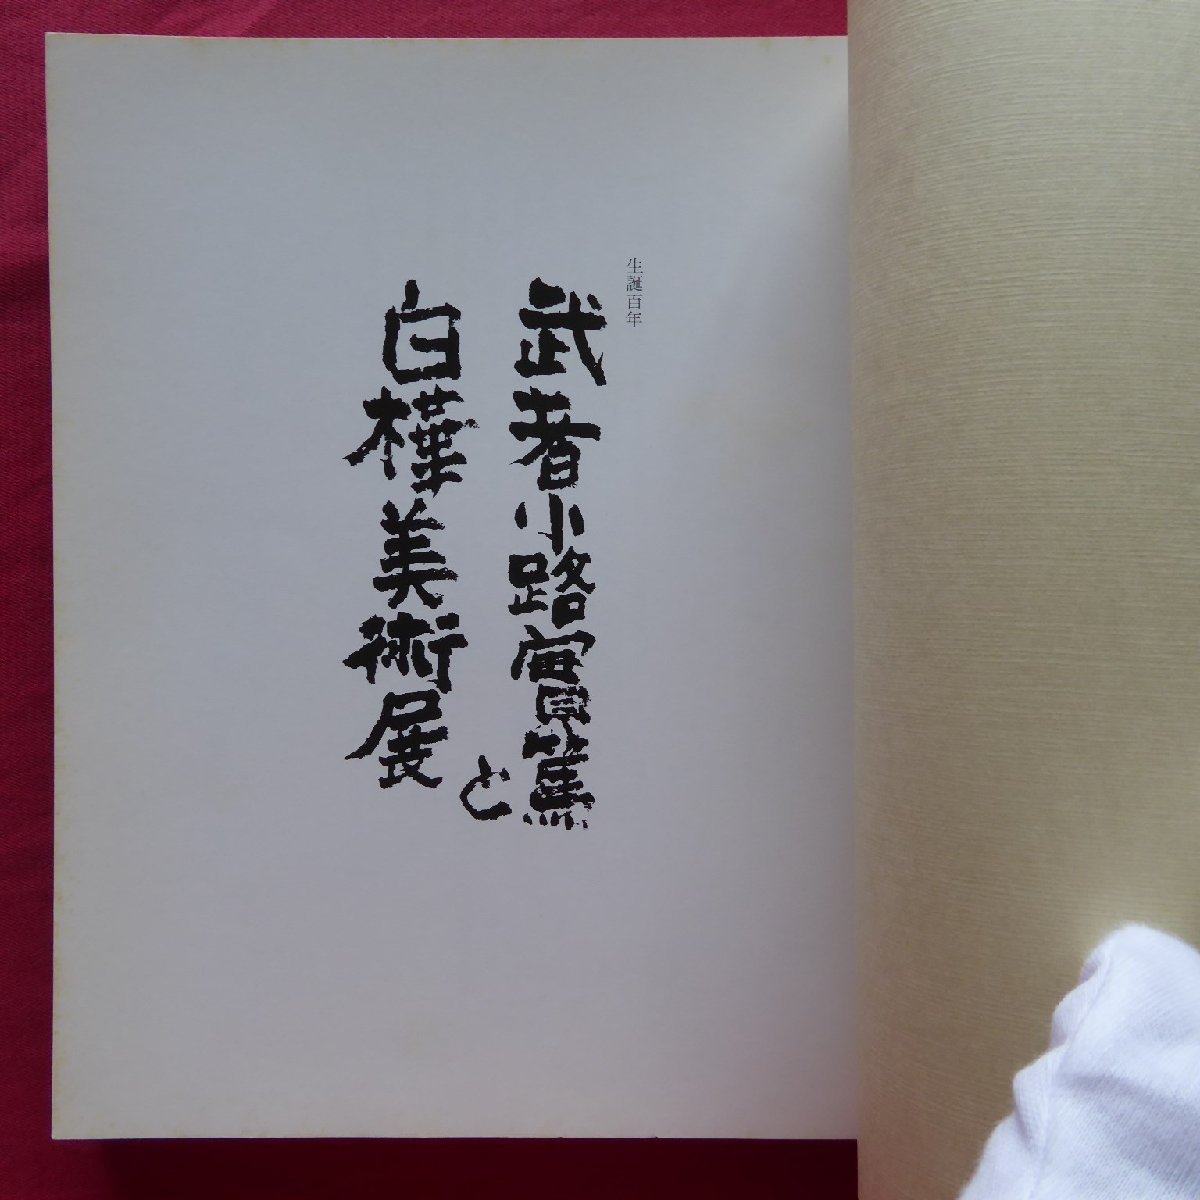 生誕百年
武者小路實篤
と
白樺美術展